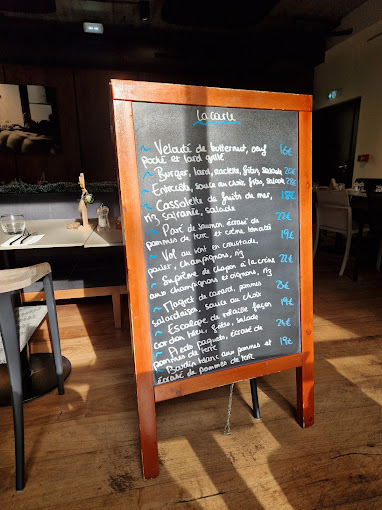 La carte
~ Velouté de butternut, œuf 16€
poché et lard grillé
~ Burger, lard, raclette, frites, salade 20€
~ Entrecôte, sauce au choix, frites, salade 28€
~ Cassolette de fruits de mer, 18€
riz safrané, salade
~ Pavé de saumon, écrasé de 22€
pommes de terre et crème tomate
~ Vol au vent en croustade, 19€
poulet, champignons, riz
~ Suprême de chapon à la crème 22€
aux champignons et oignons, riz
~ Magret de canard, pommes 25€
salardaises, sauce au choix
~ Escalope de volaille façon 19€
cordon bleu, frites, salade
~ Pieds paquets, écrasé de 24€
pommes de terre
~ Boudin blanc aux pommes et 19€
écrasé de pommes de terre